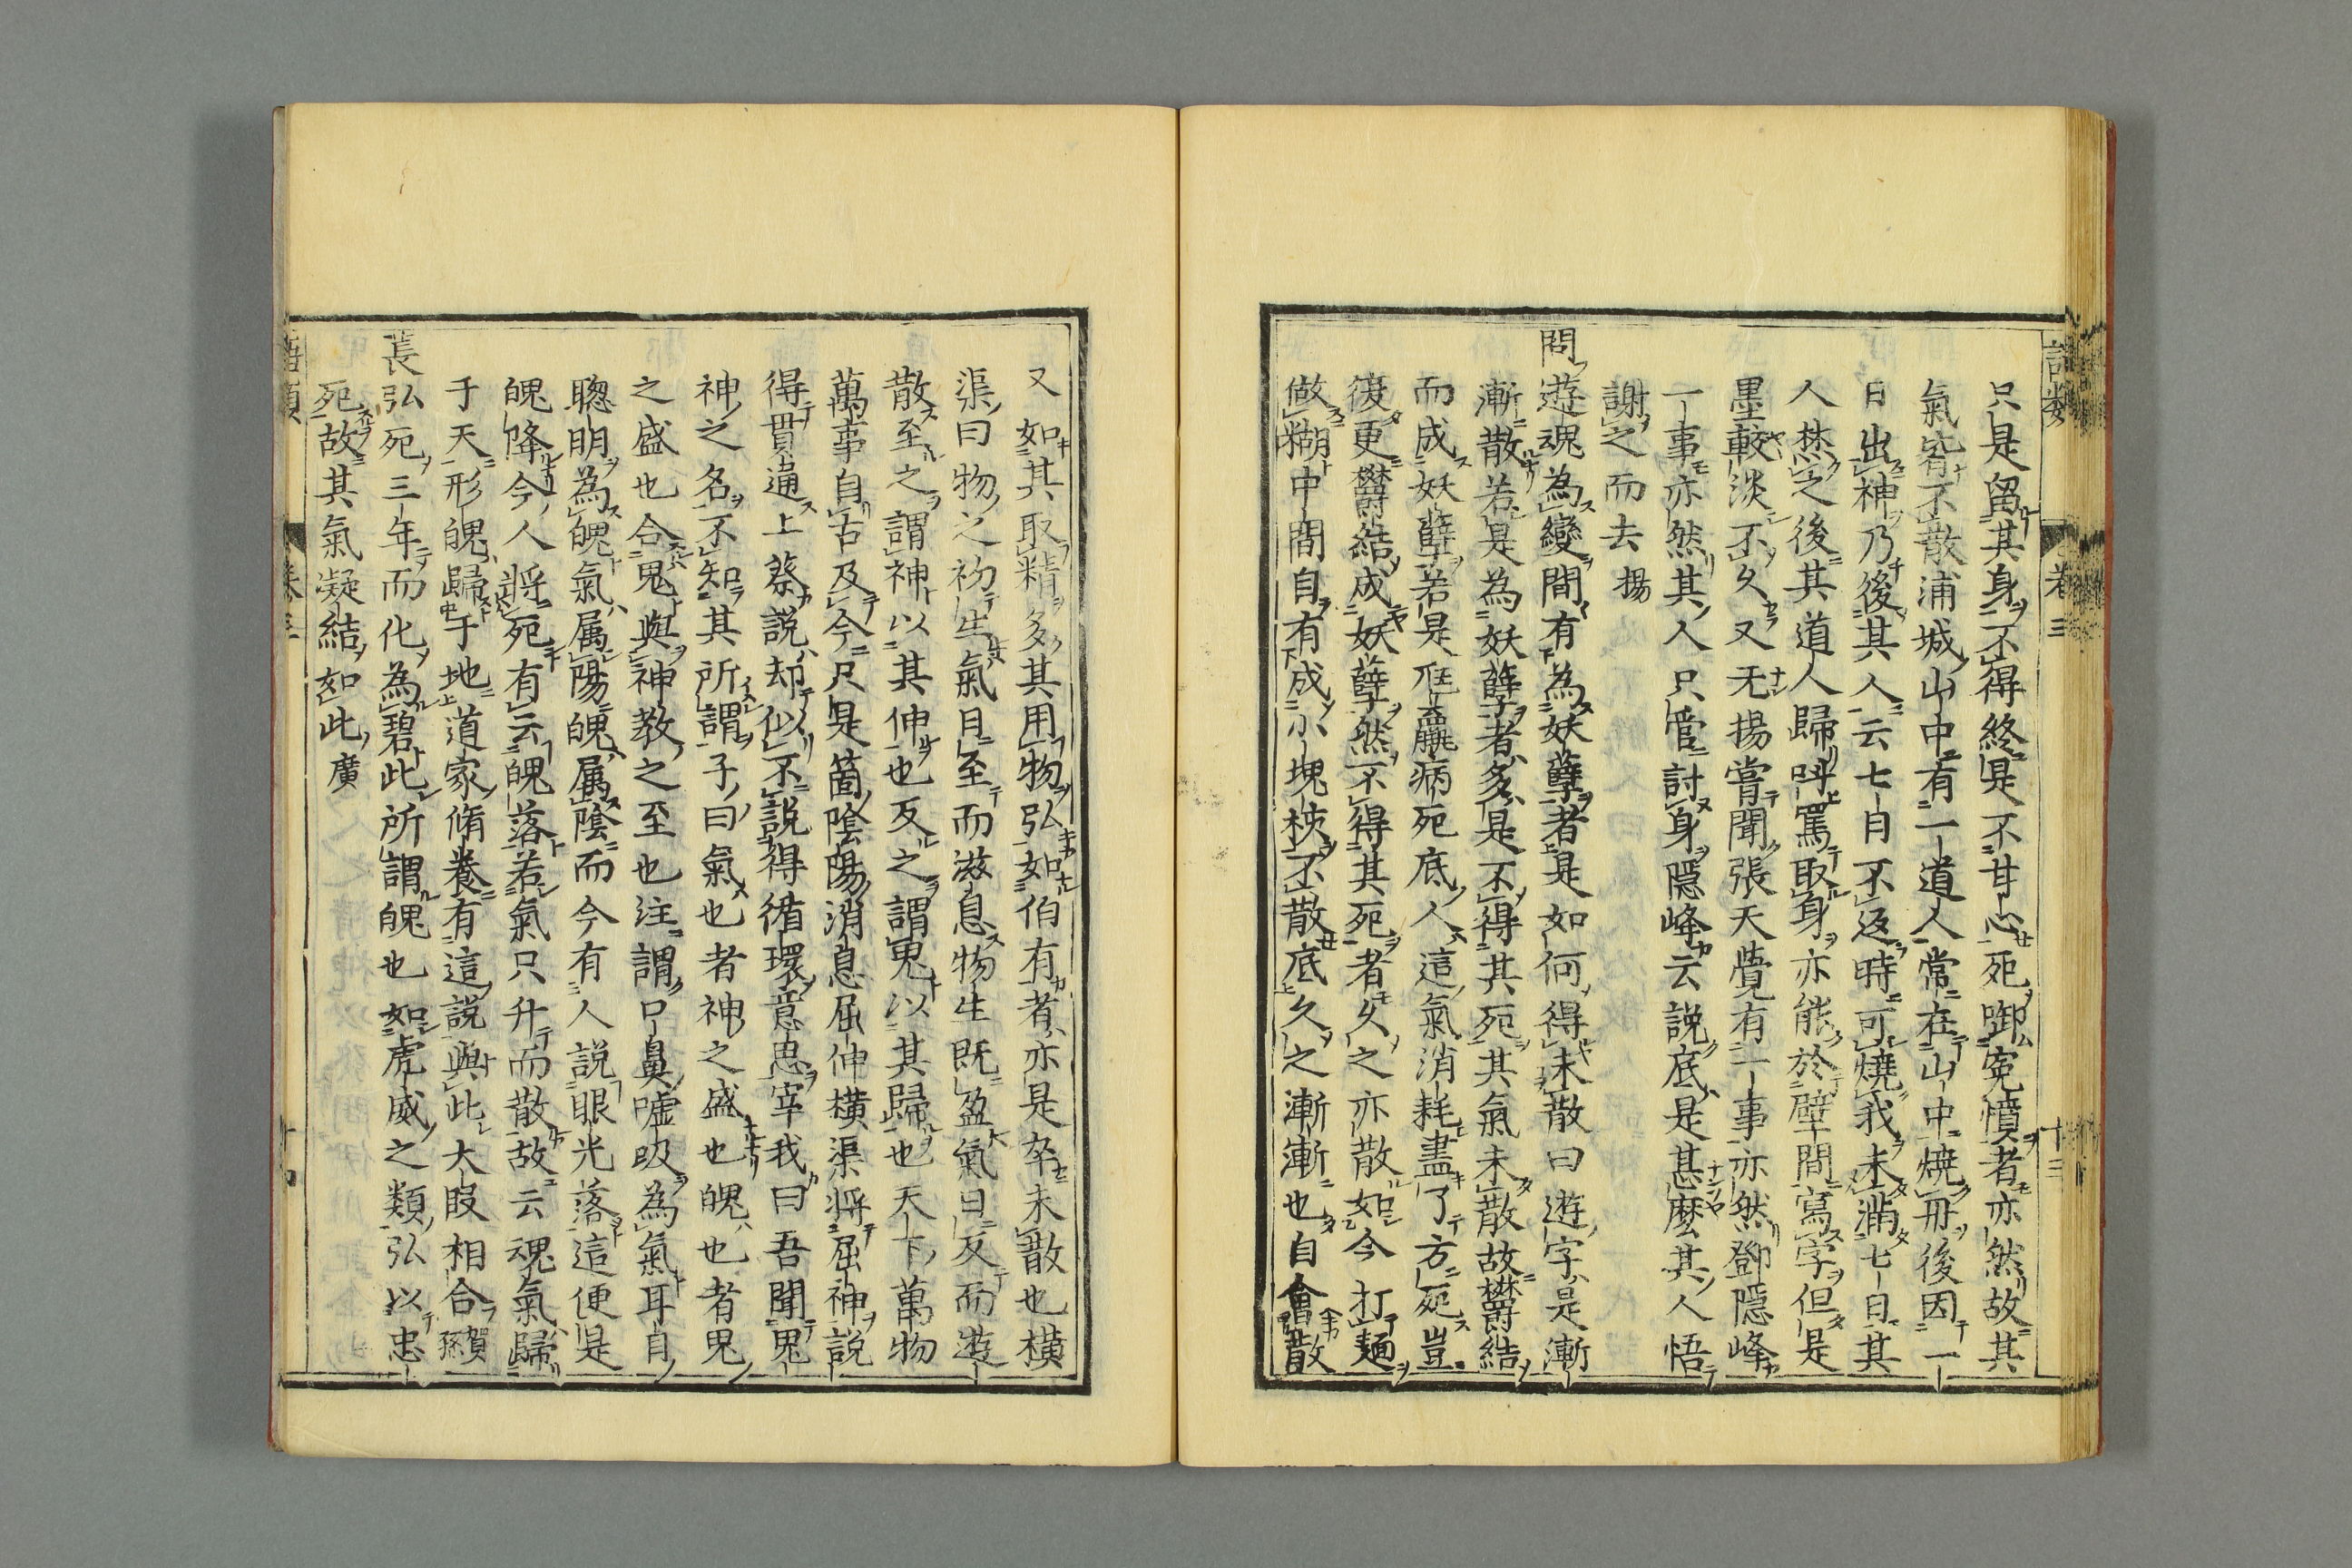 語類
卷三
十三
只是留其身不得終是不甘心死啣寃憤者亦然故其
氣皆不散浦城山中有一道人常在山中燒丹後因一
日出神乃後其人云七日不返時可燒我未滿七日其
人焚之後其道人歸呌罵取身亦能於壁間寫字但是
墨較淡不久又无揚嘗聞張天覺有一事亦然鄧隱峰
一事亦然其人只管討身隱峰云說底是甚麽其人悟
謝之而去揚
問遊魂為變間有為妖孽者是如何得未散曰遊字是漸
漸散若是為妖孽者多是不得其死其氣未散故欝結
而成妖孽若是尫羸病死底人這氣消耗盡了方死豈
復更欝結成妖孽然不得其死者久之亦散如今打麵
做糊中間自有成小塊核不散底久之漸漸也自會散
又如其取精多其用物弘如伯有者亦是卒未散也橫
渠曰物之初生氣日至而滋息物生既盈氣日反而遊
散至之謂神以其伸也反之謂鬼以其歸也天下萬物
萬事自古及今只是箇陰陽消息屈伸橫渠將屈神說
得貫通上蔡說却似不說得循環意思宰我曰吾聞鬼
神之名不知其所謂子曰氣也者神之盛也魄也者鬼
之盛也合鬼與神教之至也注謂口鼻噓吸為氣耳目
聰明為魄氣属陽魄属陰而今有人說眼光落這便是
魄降今人將死有云魄落若氣只升而散故云魂氣歸
于天形魄歸于地道家脩養有這說與此大叚相合賀孫
萇弘死三年而化為碧此所謂魄也如虎威之類弘以忠
死故其氣凝結如此廣
語類
卷三
十四